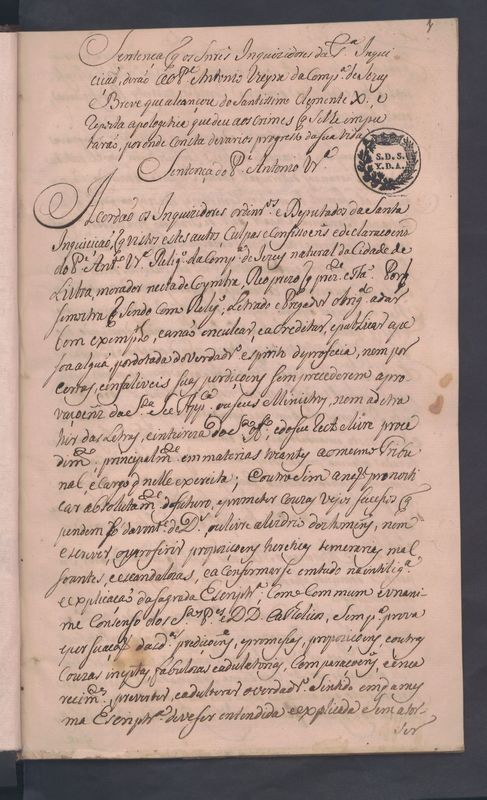 Sentença q̃ os Snr̃es Inquizidores da S.ta Inqui
cição, derão ao P.e Antonio Vieyra da Comp.a de Jezu
e Breve que alcançou do Santissimo Clemente X., e
reposta apologetica que deu aos crimes q̃ se lhe impu
tarão, por onde consta de varios progressos da sua vida
S.D.S.
X.D.A.
Sentença do P.e Antonio Vr.a
Acordão os Inquizidores ordinr.os e Deputados da Santa
Inquicição, q̃ vistos estes autos, culpas e confissoens e declaracoens
do P.e Ant.o Vr.a Relig.o da Comp.a de Jezu natural da Cidade de
Lixboa, morador nesta de Coymbra, Reo prezo q̃ prez.te está. Porq̃
se mostra q̃ sendo como Relig.o Letrado e Pregador obrig.do a dar
bom exemplo, e a não inculcar, e acreditar, e publicar a pe
soa algũa, por dotada do verdadr.o espirito de profecia, nem por
certas, e infaliveis suas perdicoens sem precederem apro
vaçoens da S.ta Sé App.ca ou seus Ministros, nem a detra
hir das Letras, e inteireza do S.to Off.o, e do seu recto e livre proce
dim.to, principalm.te em materias tocantes ao mesmo Tribu
nal, e cargo q̃ nelle exercita; e outro sim a não pronosti
car absolutam.te do futuro, e prometer couzas cujos sucessos
pendem só da vont.e de D.s ou livre alvidrio dos homens, nem
escrever, ou proferir propoziçoens hereticas temerarias, mal
soantes, e escandalozas, e a conformarse em tudo na intelig.a
e explicacão da sagrada Escriptr.a com o commum e unani
me consenso dos S.tos P.es e DD. Catholicos, sem p.a prova
e persuação das d.as predicoens, e promessas, propoziçoens, e outras
couzas ineptas, fabulozas e adulatorias, comparacoens, e enca
recim.tos, preverter, e adulterar o verdadr.o sentido em q̃ a mes
ma Escriptr.a deve ser entendida e explicada e sem a tor-
cer